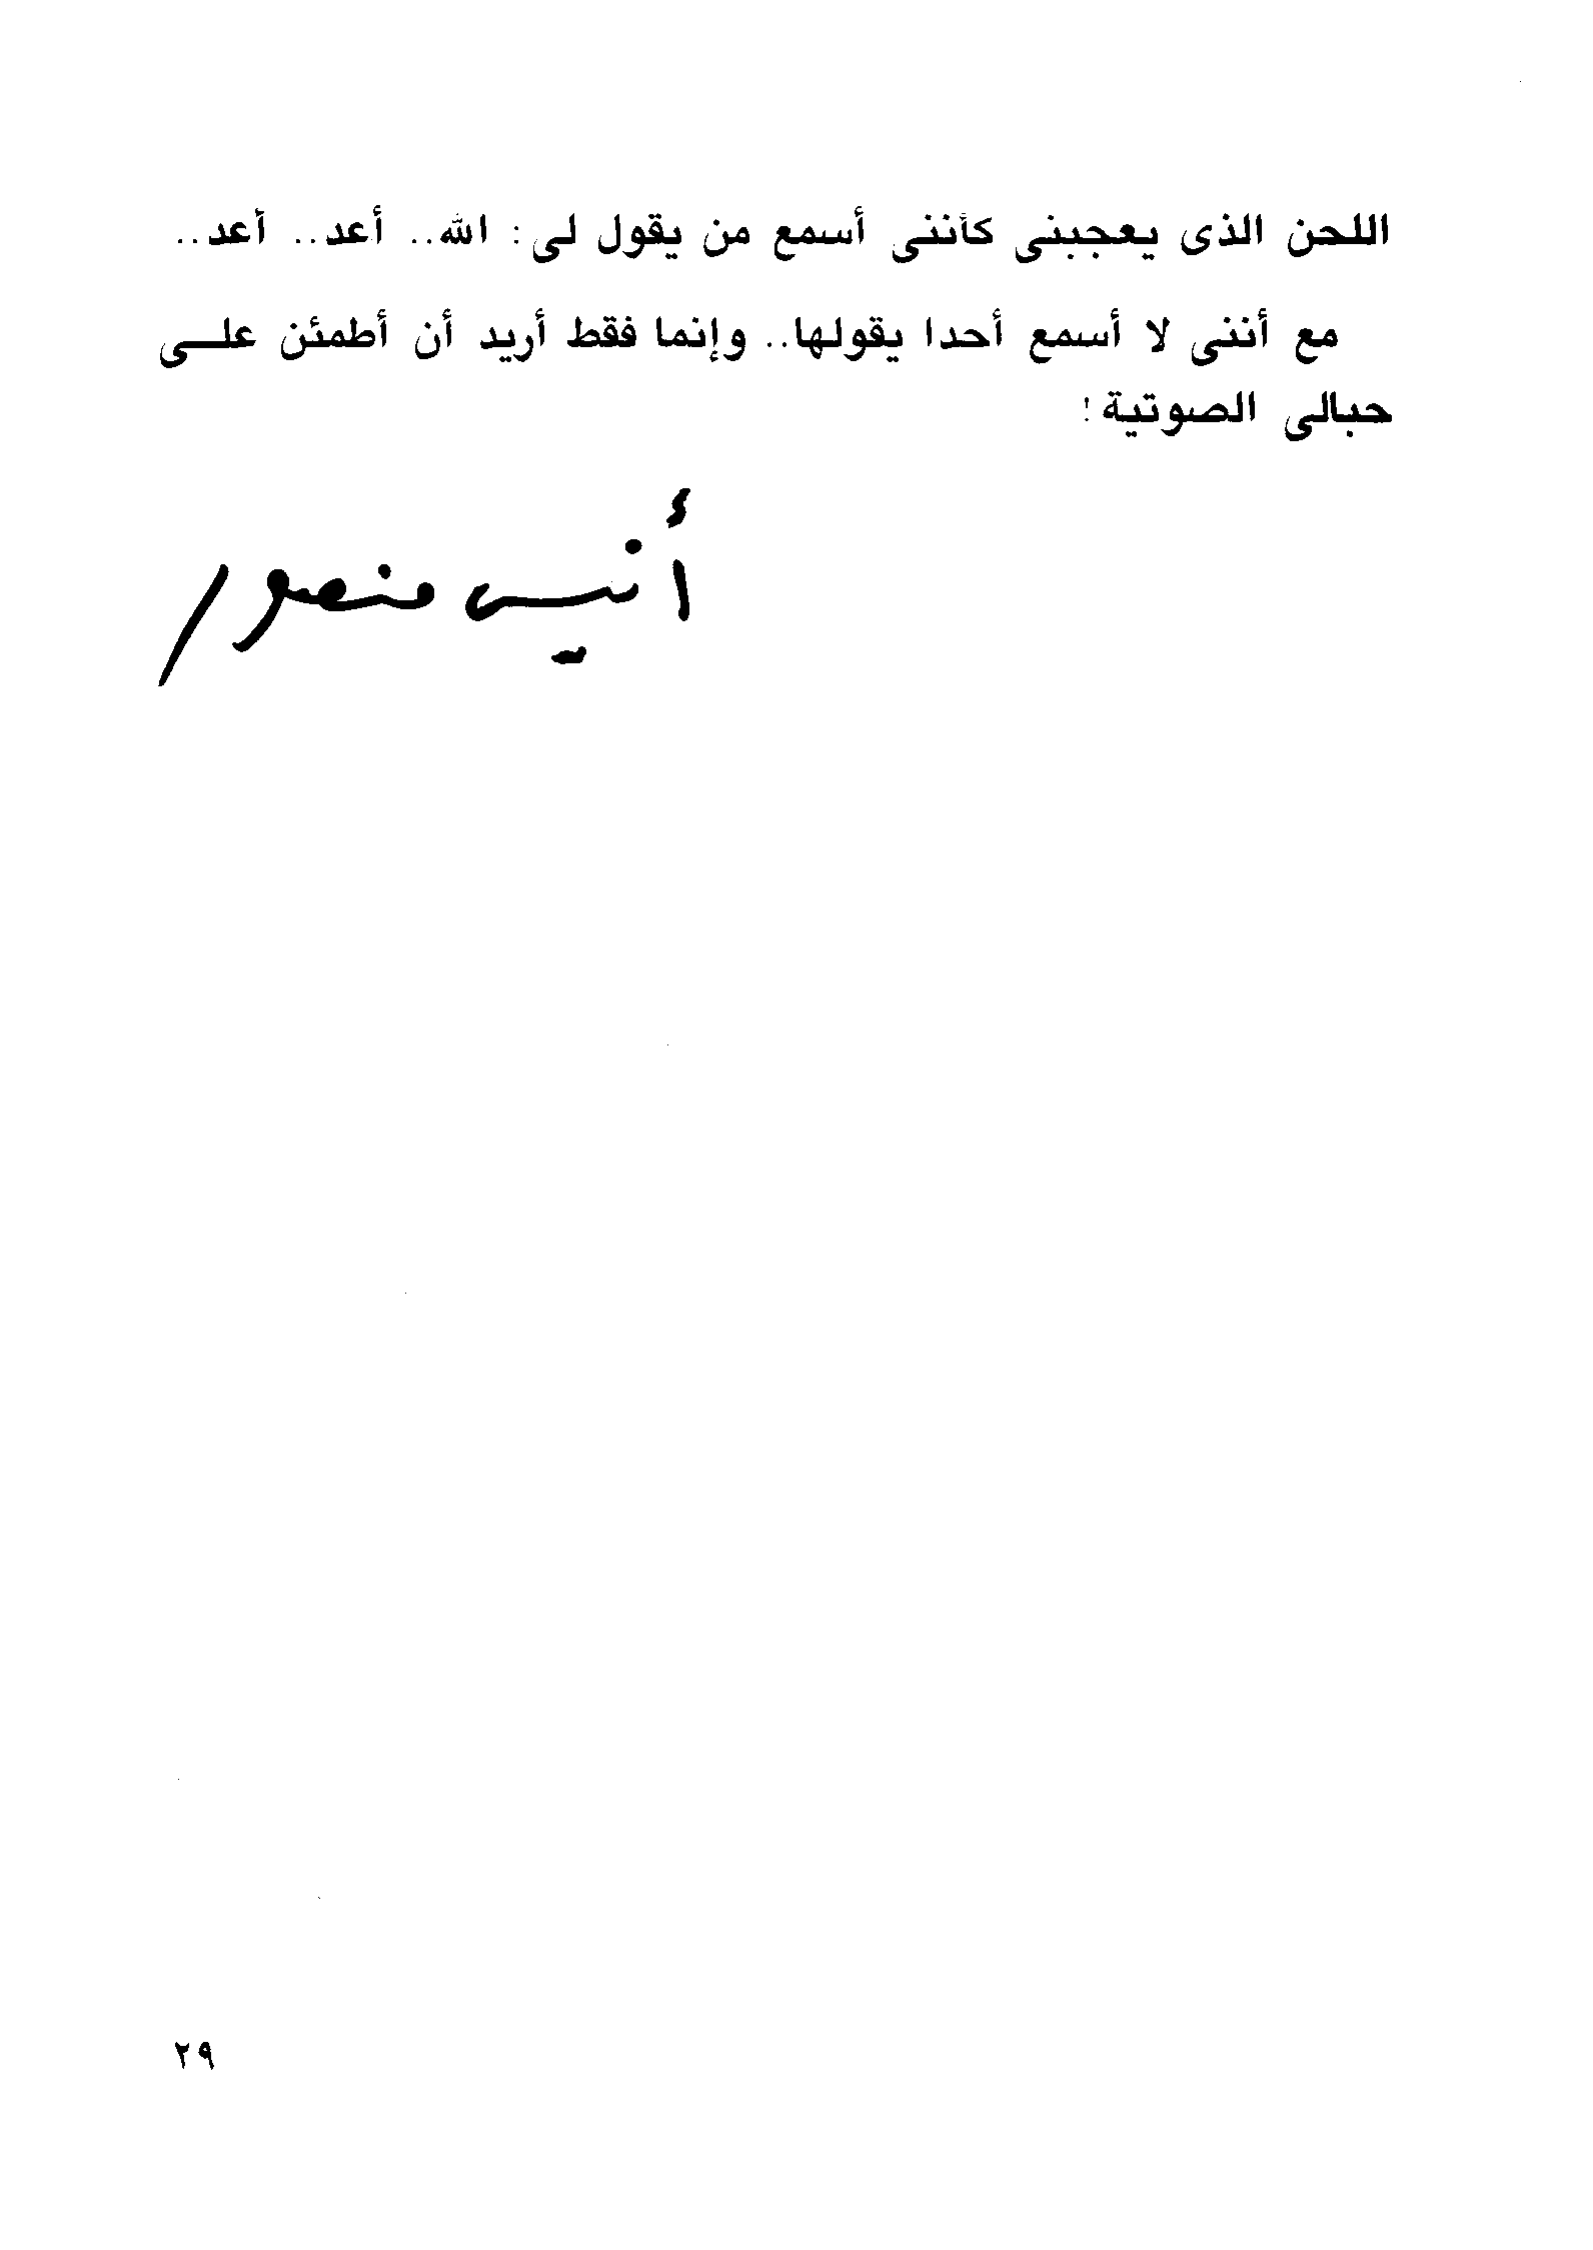 اللحن الذى يعجبنى كأننى أسمع من يقول لى : الله.. أعد.. أعد..
مع أننى لا أسمع أحدا يقولها.. وإنما فقط أريد أن أطمئن علـــى
حبالى الصوتية !
أنيس منصور
٢٩